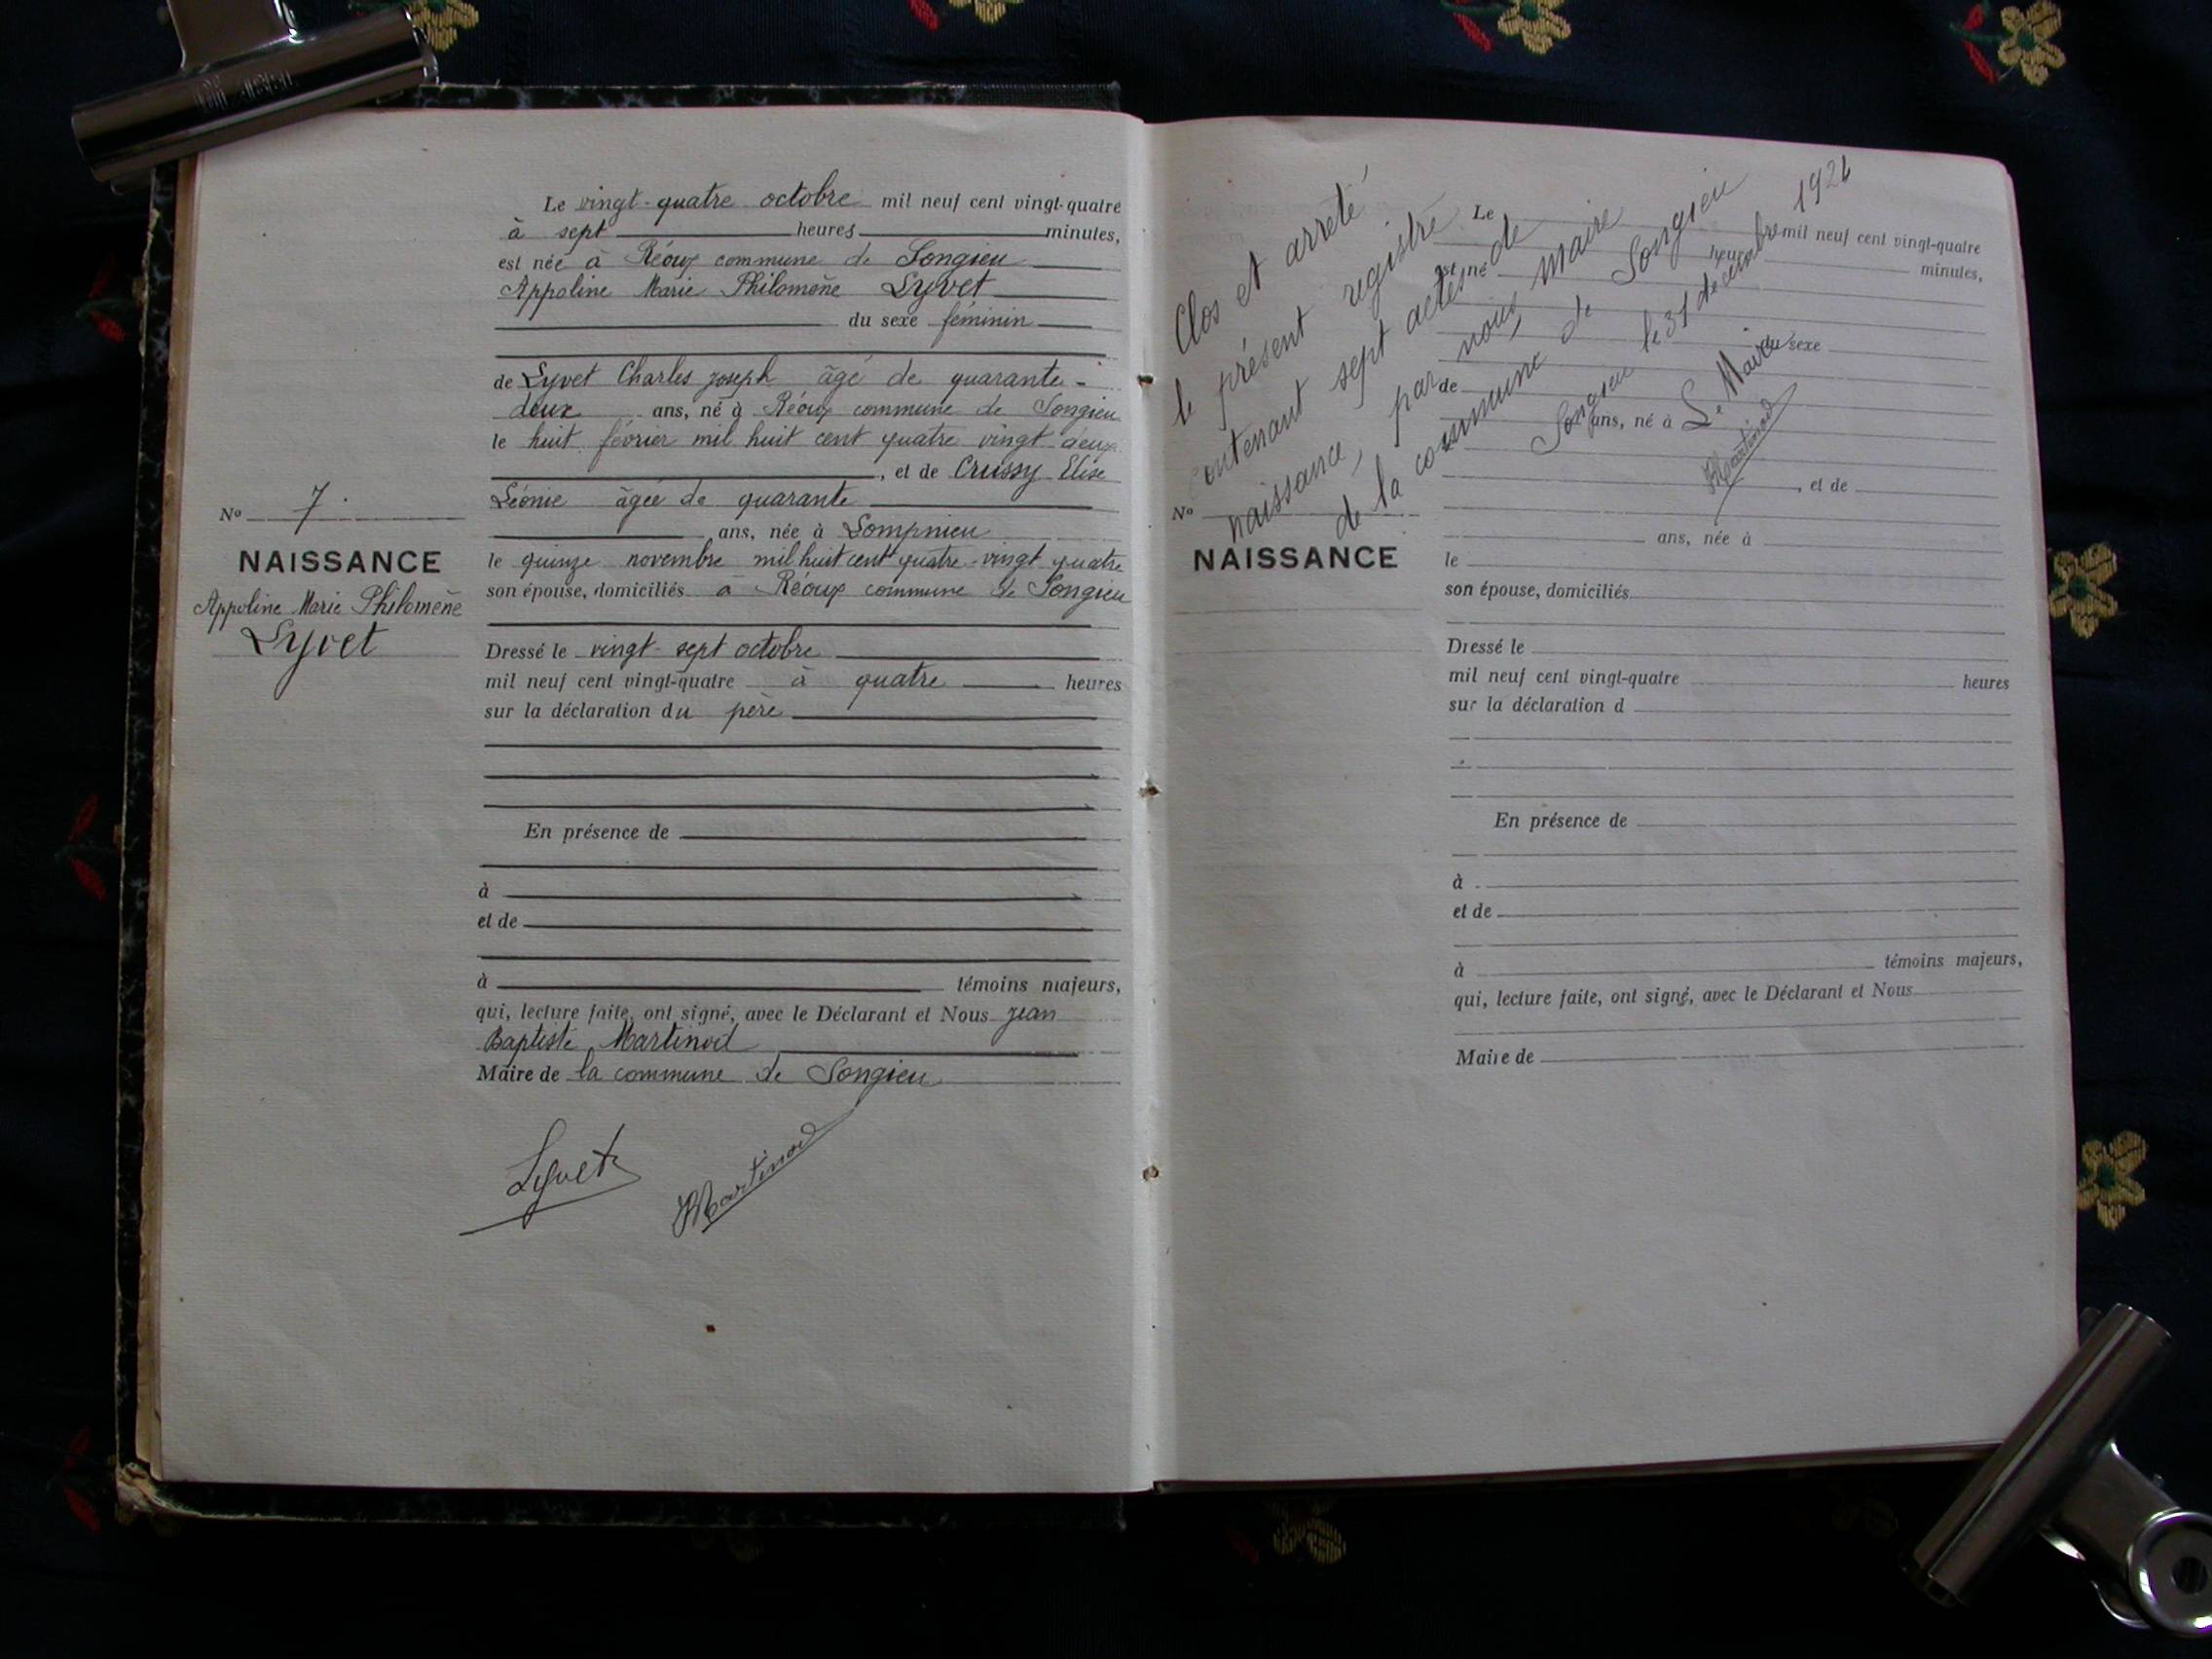 Le vingt-quatre octobre mil neuf cent vingt-quatre
à sept heures minutes,
est née à Réoux commune de Songieu
Appoline Marie Philomène Lyvet
du sexe féminin
de Lyvet Charles Joseph âgé de quarante-
deux ans, né à Réoux commune de Songieu
le huit février mil huit cent quatre vingt deux
, et de Crussy Elise
Léonie âgée de quarante
ans, née à Lompnieu
le quinze novembre mil huit cent quatre-vingt quatre
son épouse, domiciliés à Réoux commune de Songieu
Dressé le vingt-sept octobre
mil neuf cent vingt-quatre à quatre heures
sur la déclaration du père
En présence de
à
et de
à témoins majeurs,
qui, lecture faite, ont signé, avec le Déclarant et Nous Jean
Baptiste Martinod
Maire de la commune de Songieu
Lyvet
Martinod
No 7.
NAISSANCE
Appoline Marie Philomène
Lyvet
Clos et arreté
le présent registre
contenant sept actes de
naissance, par nous, maire
de la commune de Songieu
Songieu le 31 décembre 1924
Le Maire
Martinod
No
NAISSANCE
Le mil neuf cent vingt-quatre
heures minutes,
est né
du sexe
de
ans, né à
, et de
ans, née à
le
son épouse, domiciliés
Dressé le
mil neuf cent vingt-quatre heures
sur la déclaration d
En présence de
à
et de
à témoins majeurs,
qui, lecture faite, ont signé, avec le Déclarant et Nous
Maire de